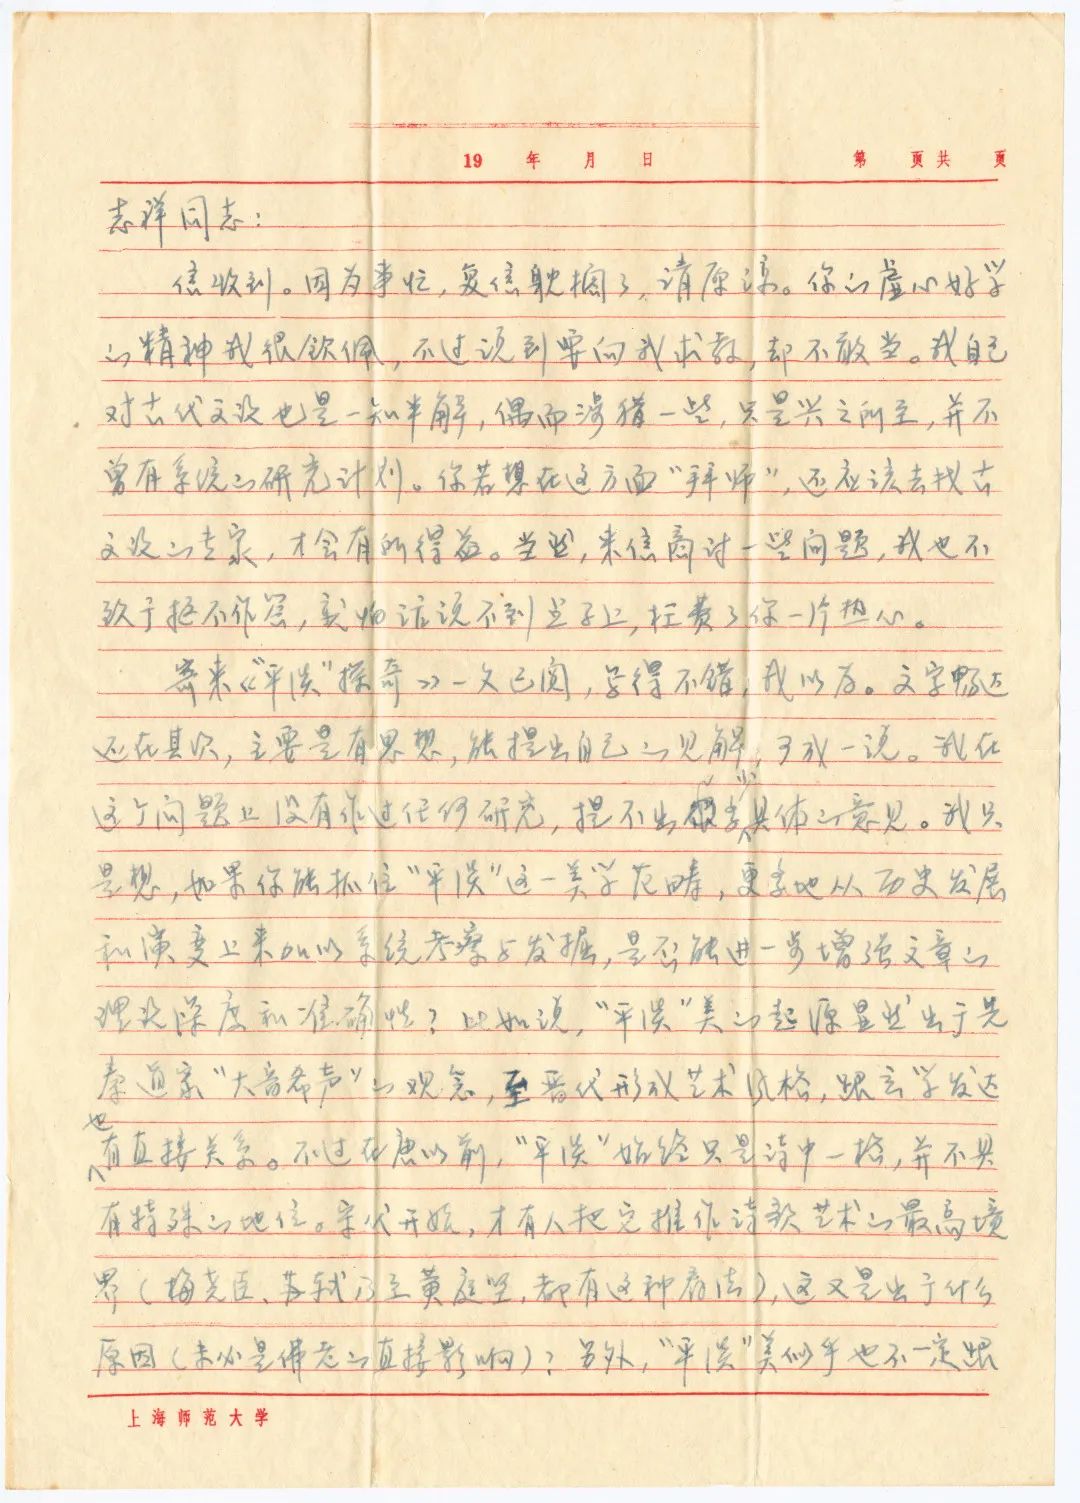 19 年 月 日 第 页共 页
志祥同志：
信收到。因为事忙，复信耽搁了，请原谅。你的虚心好学
的精神我很钦佩，不过说到要向我求教，却不敢当。我自己
对古代文论也是一知半解，偶而涉猎一些，只是兴之所至，并不
曾有系统的研究计划。你若想在这方面“拜师”，还应该去找古
文论的专家，才会有所得益。当然，来信商讨一些问题，我也不
致于拒不作答，就怕话说不到点子上，枉费了你一片热心。
寄来《“平淡”探奇》一文已阅，写得不错，我以为。文字畅达
还在其次，主要是有思想，能提出自己的见解，可成一说。我在
这个问题上没有作过任何研究，提不出多少具体的意见。我只
是想，如果你能抓住“平淡”这一美学范畴，更多地从历史发展
和演变上来加以系统考察与发掘，是否能进一步增强文章的
理论深度和准确性？比如说，“平淡”美的起源显然出于先
秦道家“大音希声”的观念，至晋代形成艺术风格，跟玄学发达
也有直接关系。不过在唐以前，“平淡”始终只是诗中一格，并不具
有特殊的地位。宋代开始，才有人把它推作诗歌艺术的最高境
界（梅尧臣、苏轼乃至黄庭坚，都有这种看法），这又是出于什么
原因（未必是佛老的直接影响）？另外，“平淡”美似乎也不一定跟
上海师范大学